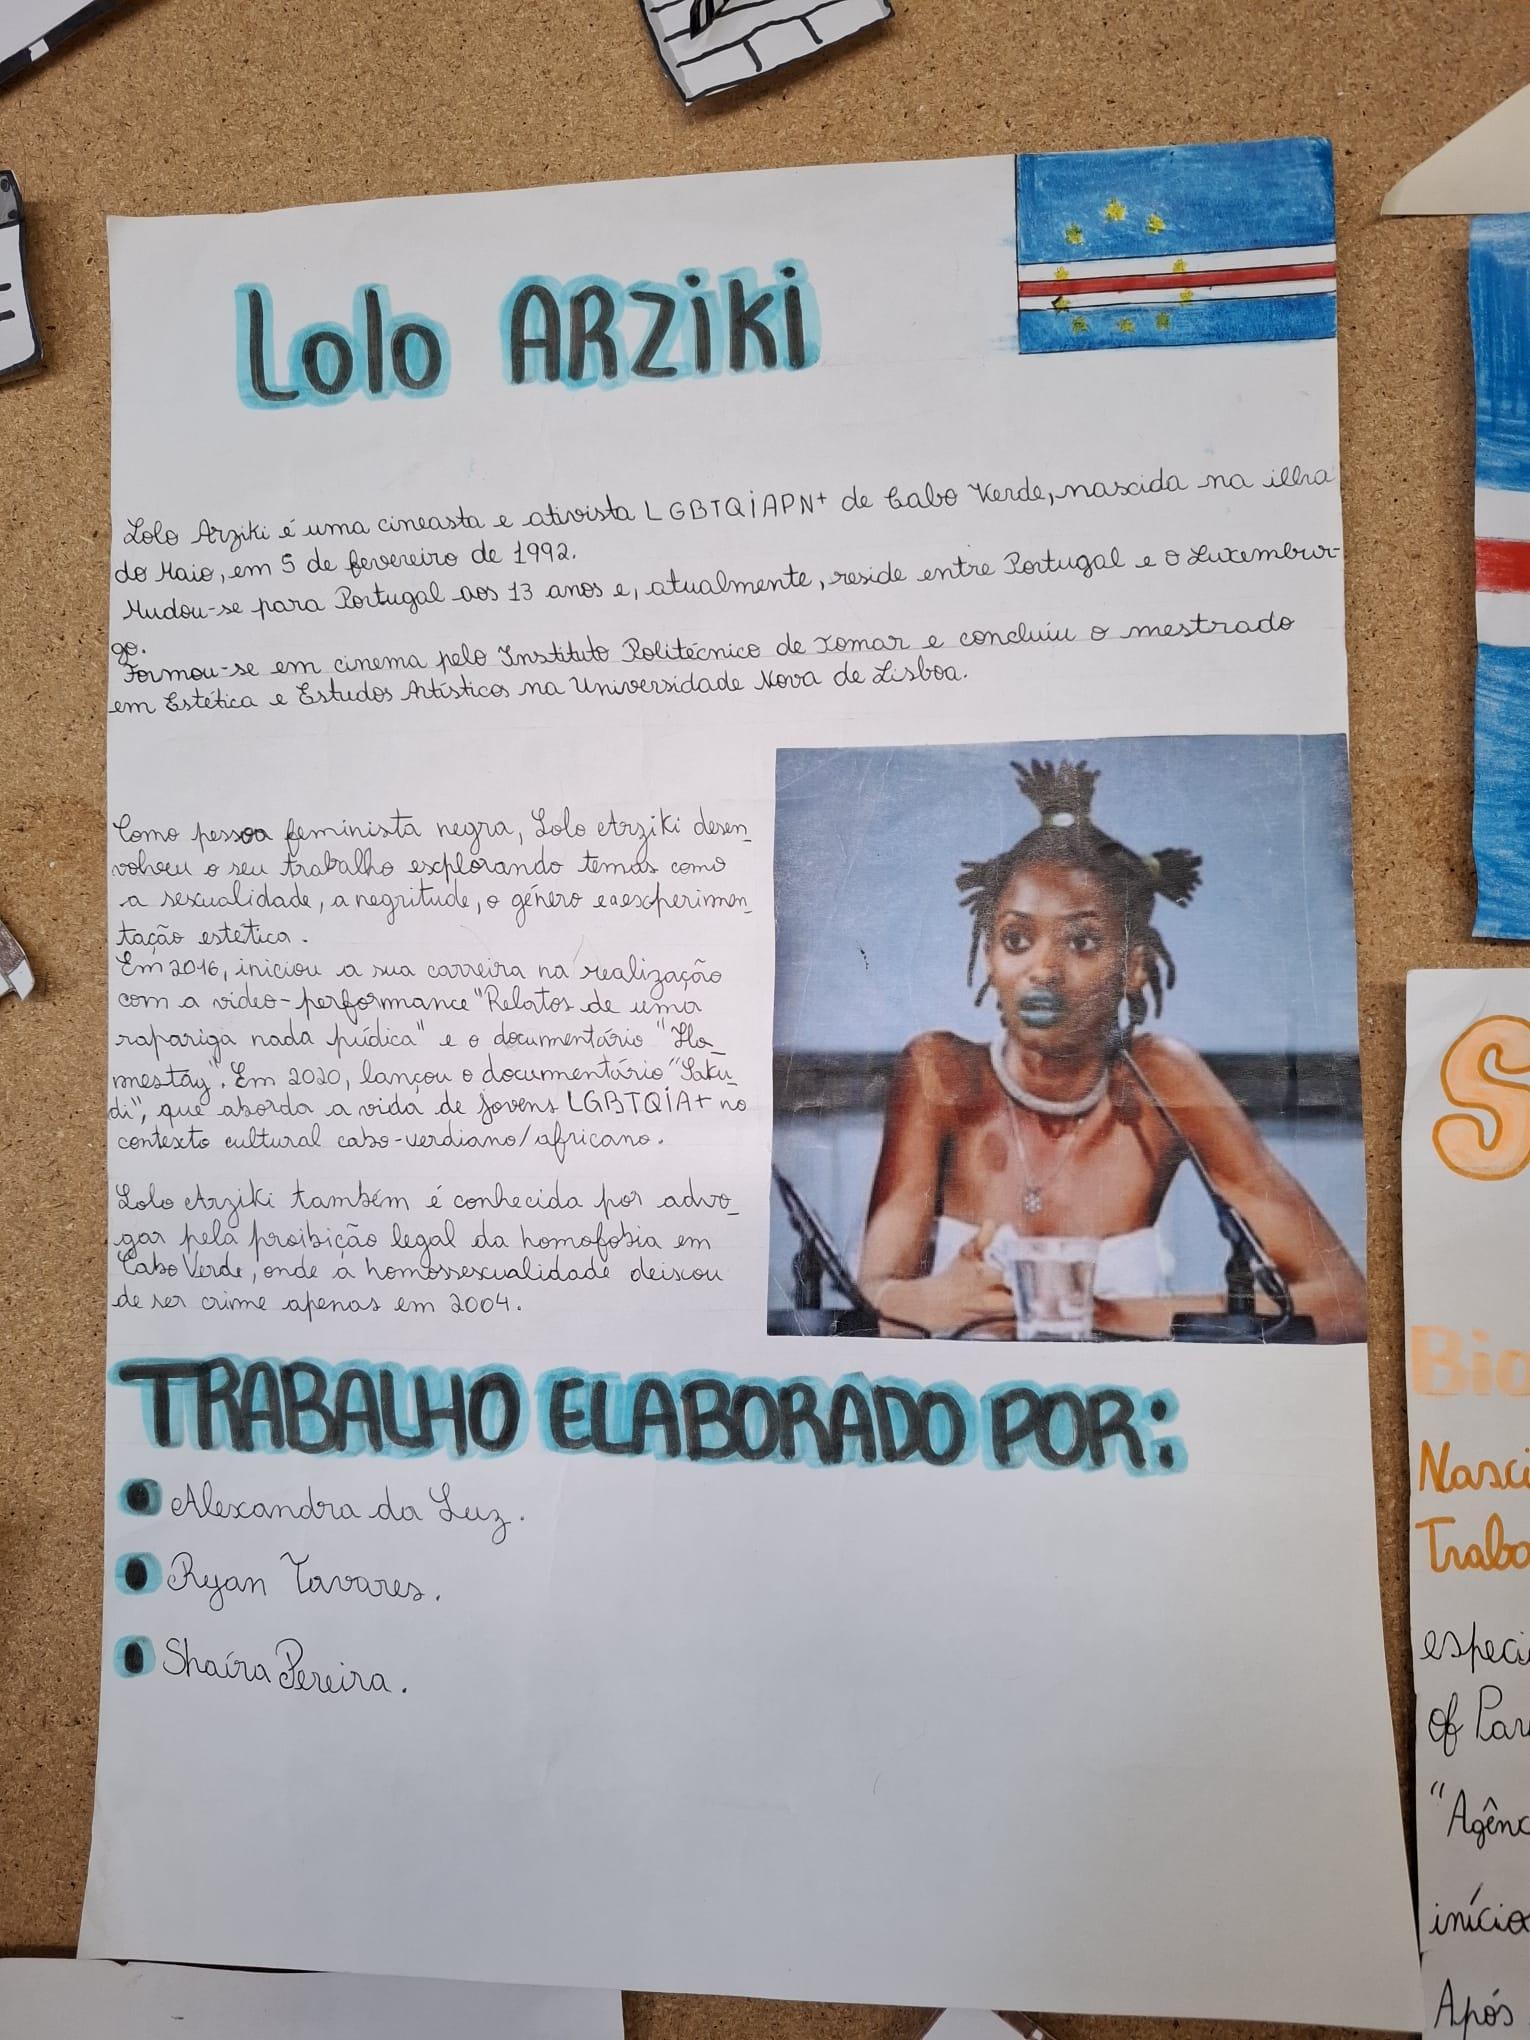 Lolo ARZiKi
Lolo Arziki é uma cineasta e ativista LGBTQiAPN+ de Cabo Verde, nascida na ilha
do Maio, em 5 de fevereiro de 1992.
Mudou-se para Portugal aos 13 anos e, atualmente, reside entre Portugal e o Luxembur-
go.
Formou-se em cinema pelo Instituto Politécnico de Tomar e concluiu o mestrado
em Estética e Estudos Artísticos na Universidade Nova de Lisboa.
Como pessoa feminista negra, Lolo Arziki desen_
volveu o seu trabalho explorando temas como
a sexualidade, a negritude, o género e a experimen_
tação estética.
Em 2016, iniciou a sua carreira na realização
com a video-performance "Relatos de uma
rapariga nada púdica" e o documentário "Ho_
mestay". Em 2020, lançou o documentário "Saku_
di", que aborda a vida de jovens LGBTQiA+ no
contexto cultural cabo-verdiano/africano.
Lolo Arziki também é conhecida por advo_
gar pela proibição legal da homofobia em
Cabo Verde, onde a homossexualidade deixou
de ser crime apenas em 2004.
TRABALHO ELABORADO POR:
Alexandra da Luz.
Ryan Tavares.
Shaíra Pereira.
S
Bio
Nasci
Trabo
especi
of Par
"Agênc
início
Após